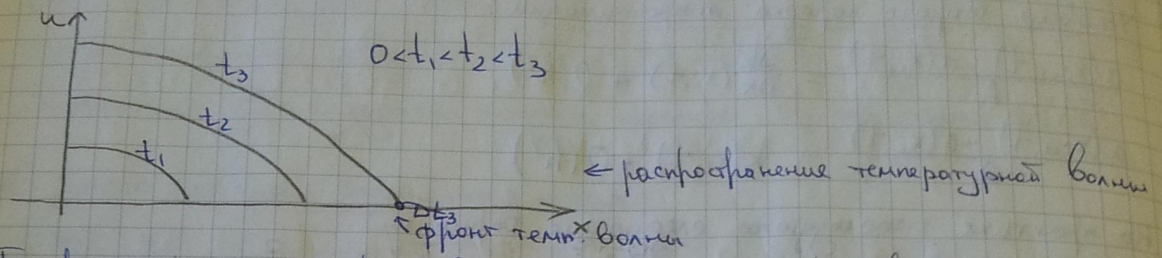 u
t₃
0<t₁<t₂<t₃
t₂
t₁
← распространение температурной волны
x
фронт темп. волны